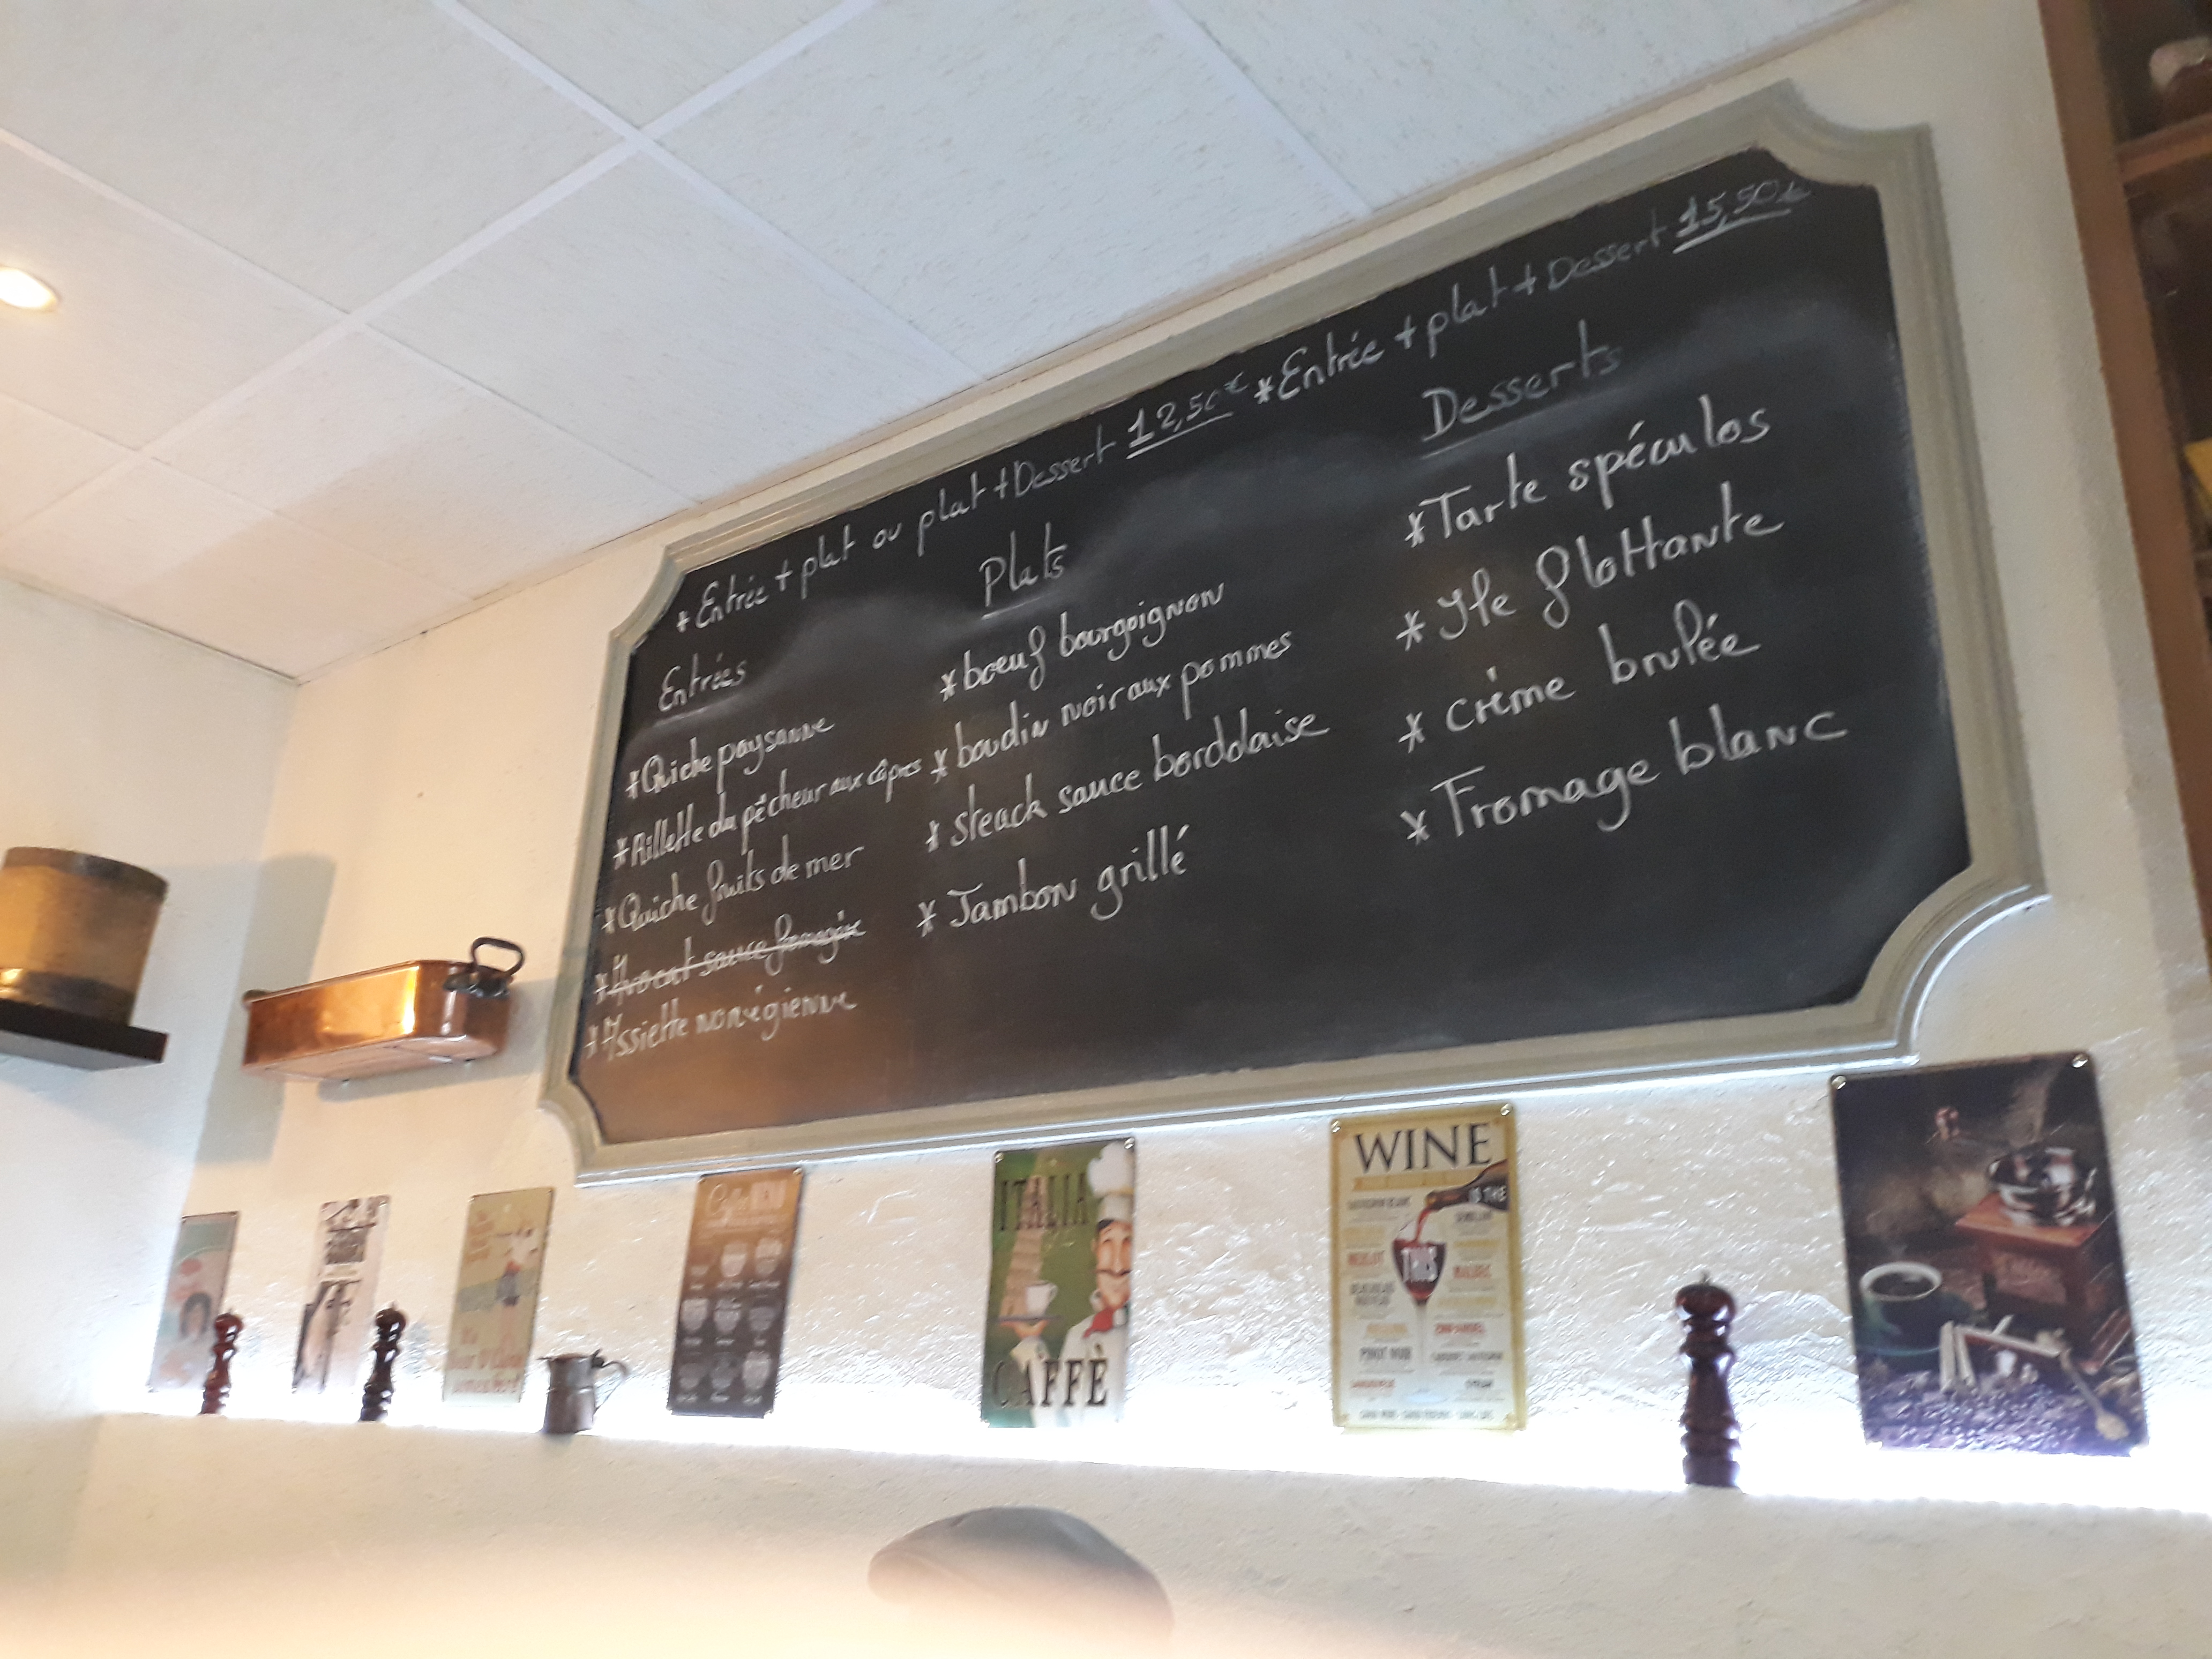 * Entrée + plat ou plat + Dessert 12,50€ * Entrée + plat + Dessert 15,50€
Entrées
* Quiche paysanne
* Rillette du pêcheur aux câpres
* Quiche fruits de mer
* Avocat sauce
* Assiette norvégienne
Plats
* boeuf bourgoignon
* boudin noir aux pommes
* steack sauce bordelaise
* Jambon grillé
Desserts
* Tarte spéculos
* Ile flottante
* créme brulée
* Fromage blanc
ITALIA
CAFFÈ
WINE
IS THE
THIS
MERLOT
MALBEC
PINOT NOIR